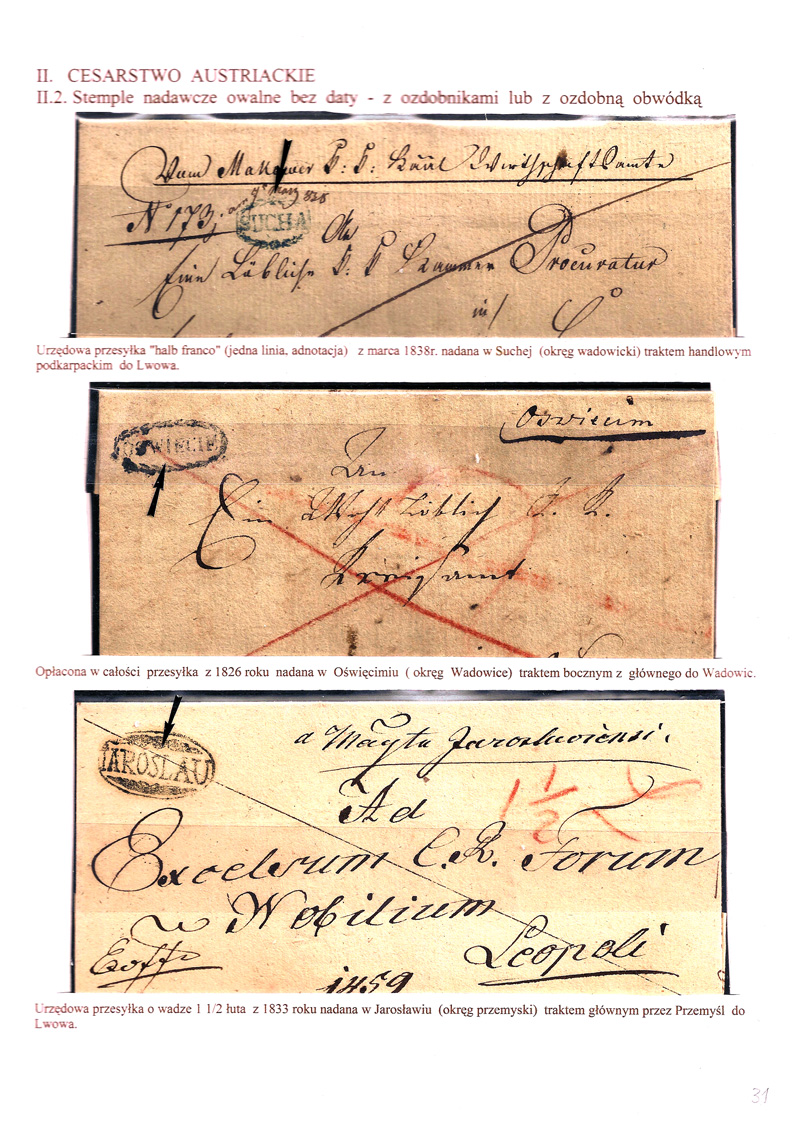 II. CESARSTWO AUSTRIACKIE
II.2. Stemple nadawcze owalne bez daty - z ozdobnikami lub z ozdobną obwódką
Vom Makower K: K: Wirthschaftsamte
No 173
SUCHA
An
Eine Löbliche K: K Kammer Procuratur
in
Urzędowa przesyłka "halb franco" (jedna linia, adnotacja) z marca 1838r. nadana w Suchej (okręg wadowicki) traktem handlowym
podkarpackim do Lwowa.
OSWIECIE
Oswiecim
An
Ein Löblich K. K.
Kreisamt
Opłacona w całości przesyłka z 1826 roku nadana w Oświęcimiu ( okręg Wadowice) traktem bocznym z głównego do Wadowic.
IAROSLAU
a Magtu Jaroslaviensi.
1 1/2
Ad
Excelsum C. R. Forum
Nobilium
Leopoli
Exoffo
1459
Urzędowa przesyłka o wadze 1 1/2 łuta z 1833 roku nadana w Jarosławiu (okręg przemyski) traktem głównym przez Przemyśl do
Lwowa.
31